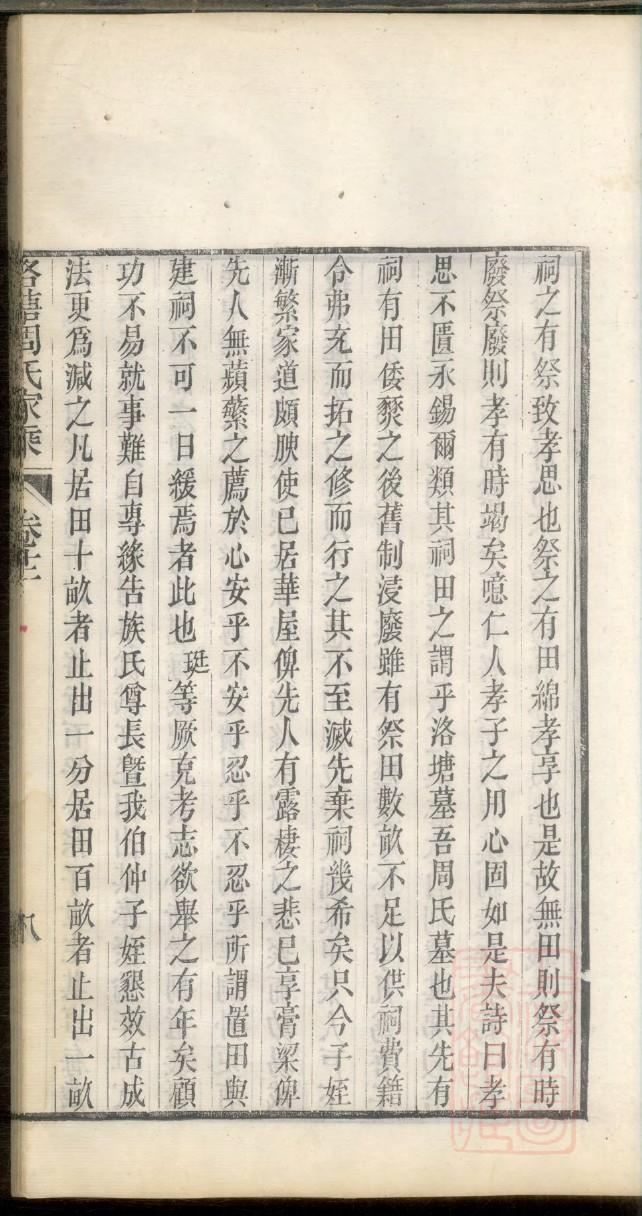 祠之有祭致孝思也祭之有田綿孝享也是故無田則祭有時
廢祭廢則孝有時竭矣噫仁人孝子之用心固如是夫詩曰孝
思不匱永錫爾類其祠田之謂乎洛塘墓吾周氏墓也其先有
祠有田倭燹之後舊制浸廢雖有祭田數畝不足以供祠費籍
令弗充而拓之修而行之其不至滅先棄祠幾希矣只今子姪
漸繁家道頗腴使已居華屋俾先人有露棲之悲已享膏粱俾
先人無蘋蘩之薦於心安乎不安乎忍乎不忍乎所謂置田與
建祠不可一日緩焉者此也珽等厥克考志欲舉之有年矣顧
功不易就事難自專緣告族氏尊長曁我伯仲子姪懇效古成
法更爲減之凡居田十畝者止出一分居田百畝者止出一畝
洛塘周氏家乘 卷十二 八